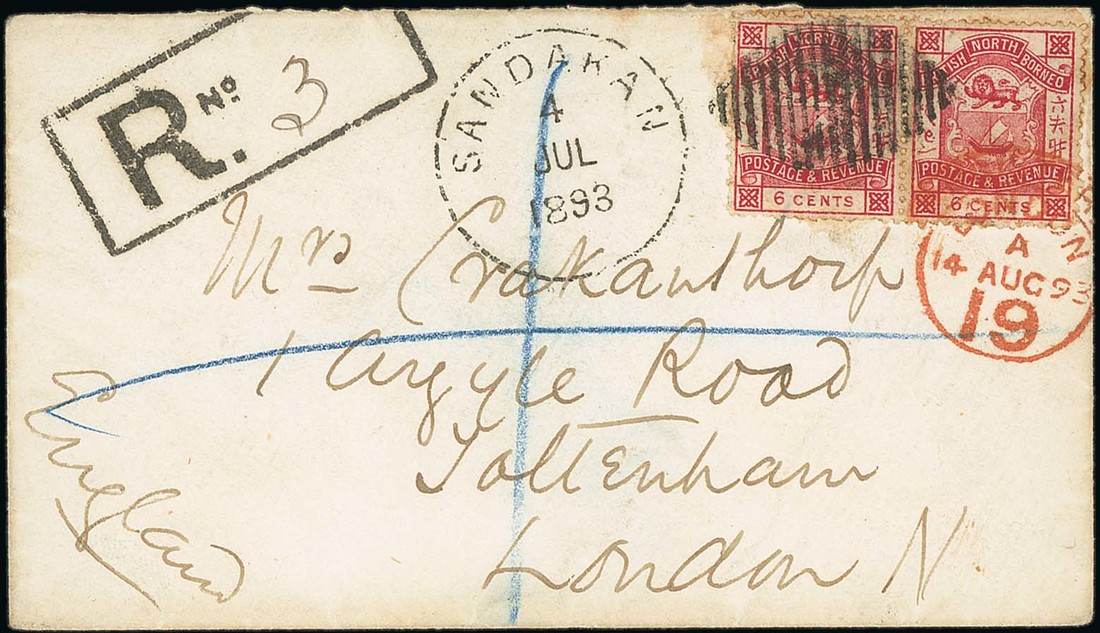 R. No. 3
SANDAKAN
4
JUL
1893
BRITISH NORTH BORNEO
POSTAGE & REVENUE
6 CENTS
BRITISH NORTH BORNEO
POSTAGE & REVENUE
6 CENTS
A
14 AUG 93
19
Mrs Crakanthorp
1 Argyle Road
Tottenham
London N
England